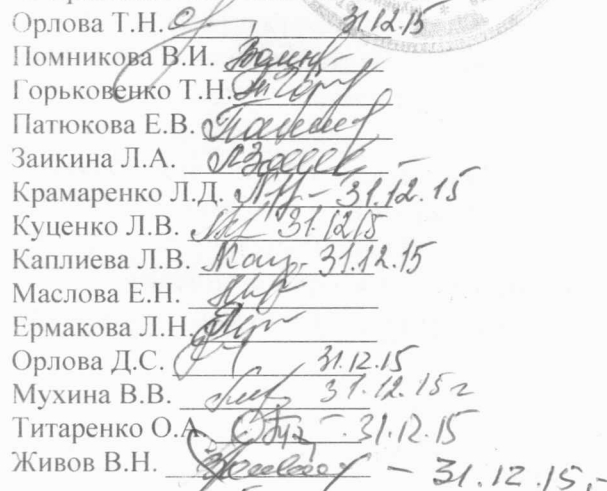 Орлова Т.Н. 31.12.15
Помникова В.И.
Горьковенко Т.Н.
Патюкова Е.В.
Заикина Л.А.
Крамаренко Л.Д. 31.12.15
Куценко Л.В. 31.12.15
Каплиева Л.В. 31.12.15
Маслова Е.Н.
Ермакова Л.Н.
Орлова Д.С. 31.12.15
Мухина В.В. 31.12.15г
Титаренко О.А. 31.12.15
Живов В.Н. – 31.12.15